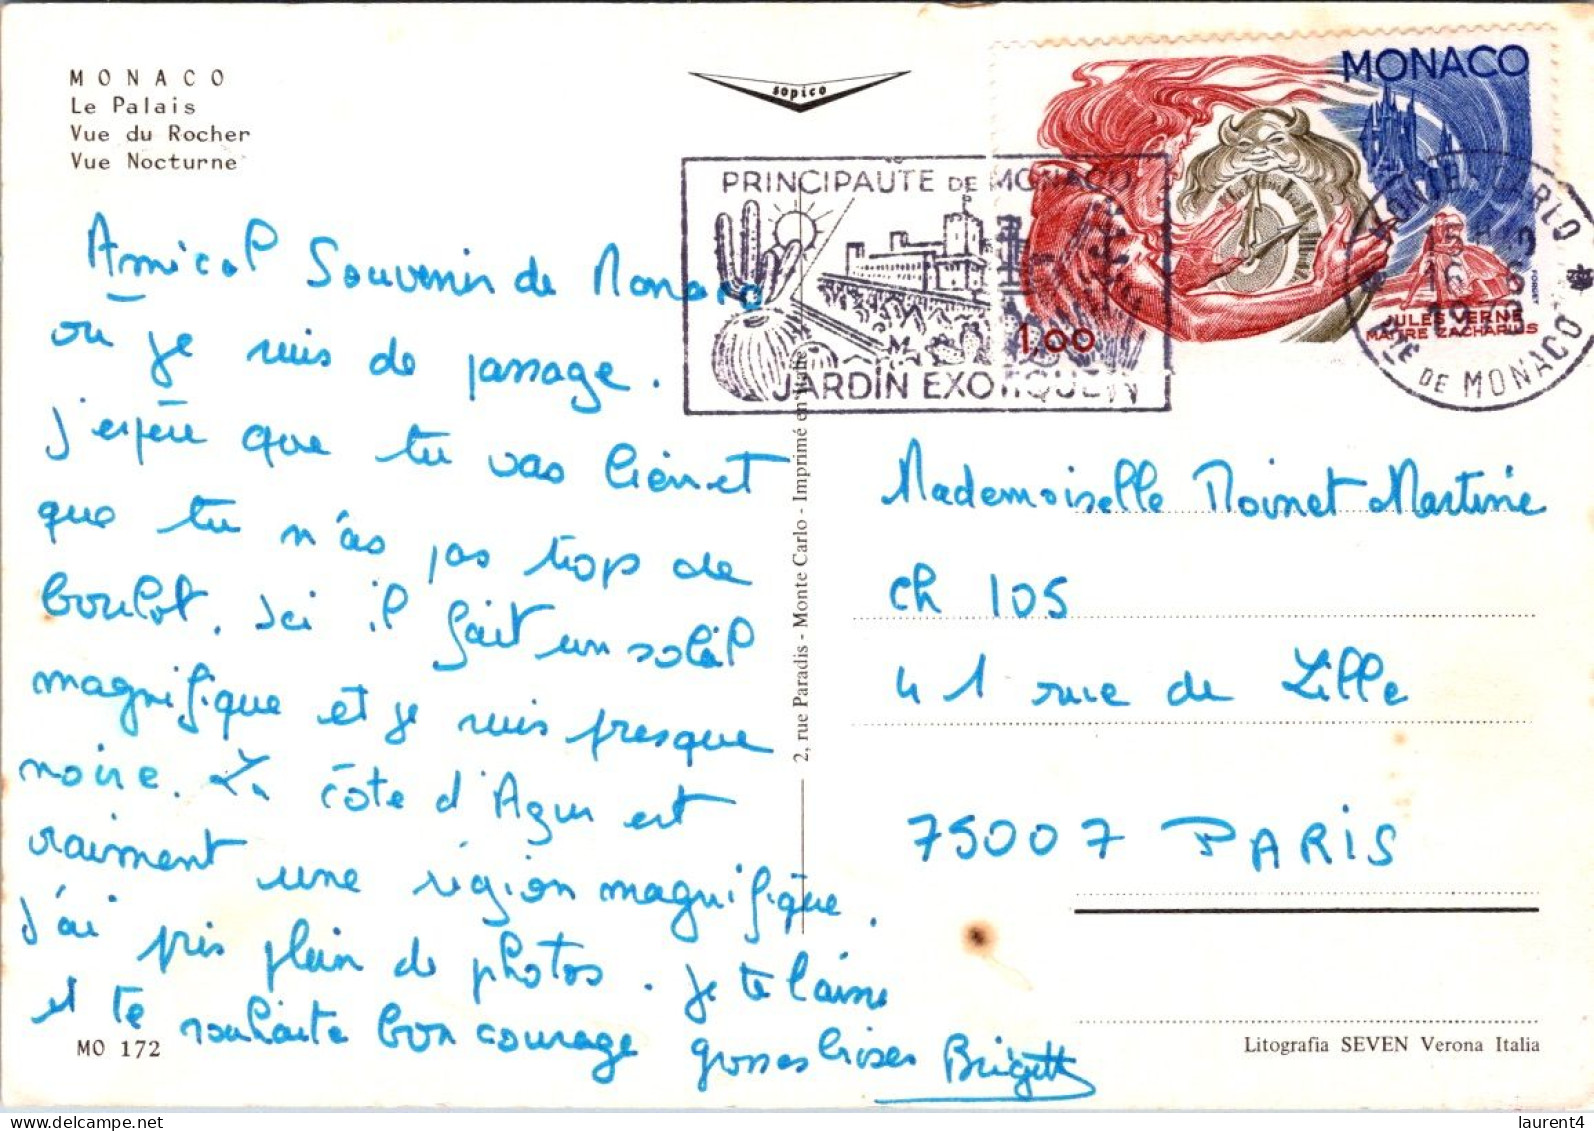 MONACO
Le Palais
Vue du Rocher
Vue Nocturne
sopico
MONACO
1,00
JULES VERNE
MAITRE ZACHARIUS
FORGET
PRINCIPAUTE DE MONACO
JARDIN EXOTIQUE
MONTE-CARLO
16 6
DE MONACO
Amical Souvenir de Monaco
où je suis de passage.
j'espère que tu vas bien et
que tu n'as pas trop de
boulot. Ici il fait un soleil
magnifique et je suis presque
noire. La côte d'Azur est
vraiment une région magnifique.
J'ai pris plein de photos. je te laisse
et te souhaite bon courage grosses bises Brigitte
2, rue Paradis - Monte Carlo - Imprimé en Italie
Mademoiselle Martine
ch 105
41 rue de Lille
75007 PARIS
MO 172
Litografia SEVEN Verona Italia
laurent4